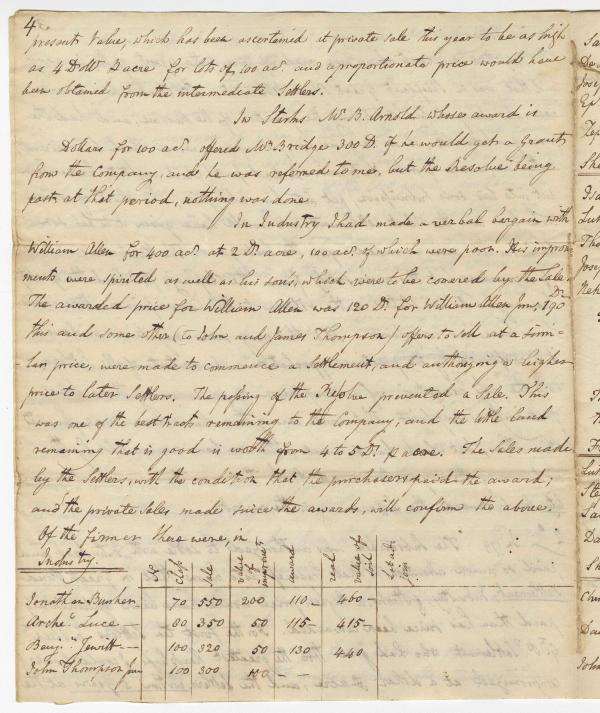 4
present Value, which has been ascertained at private sale this year to be as high
as 4 Dolls. P acre for lots of 100 acs. and a proportionate price would have
been obtained from the intermediate Settlers.
In Starks Mr. B. Arnold whose award is
Dollars for 100 acs. offered Mr. Bridge 300 D. if he would get a Grant
from the Company, and he was referred to me, but the Resolve being
past, at that period, nothing was done
In Industry I had made a verbal bargain with
William Allen for 400 acs. at 2 Ds. acre, 100 acs. of which were poor. His improve-
ments were spirited as well as his sons, which were to be covered by the Sale.
The awarded price for William Allen was 120 Ds. for William Allen Junr. 190 Ds.
this and some other (to John and James Thompson) offers to sell at a simi-
lar price, were made to commence a Settlement, and authorizing a higher
price to later Settlers. The passing of the Resolve prevented a Sale. This
was one of the best tracts remaining to the Company, and the little land
remaining that is good is worth from 4 to 5 Ds. p acre. The Sales made
by the Settlers, with the condition that the purchasers paid the award;
and the private sales made since the awards, will confirm the above.
Of the former there were, in
Industry. No. Class sale value of improvts. award real value of soil
Jonathan Bunker 70 550 200 110 - 460 -
Arche. Luce - 80 350 50 115 - 415 -
Benj. Jewitt - 100 320 50 - 130 440
John Thompson Junr 100 300 100 - -